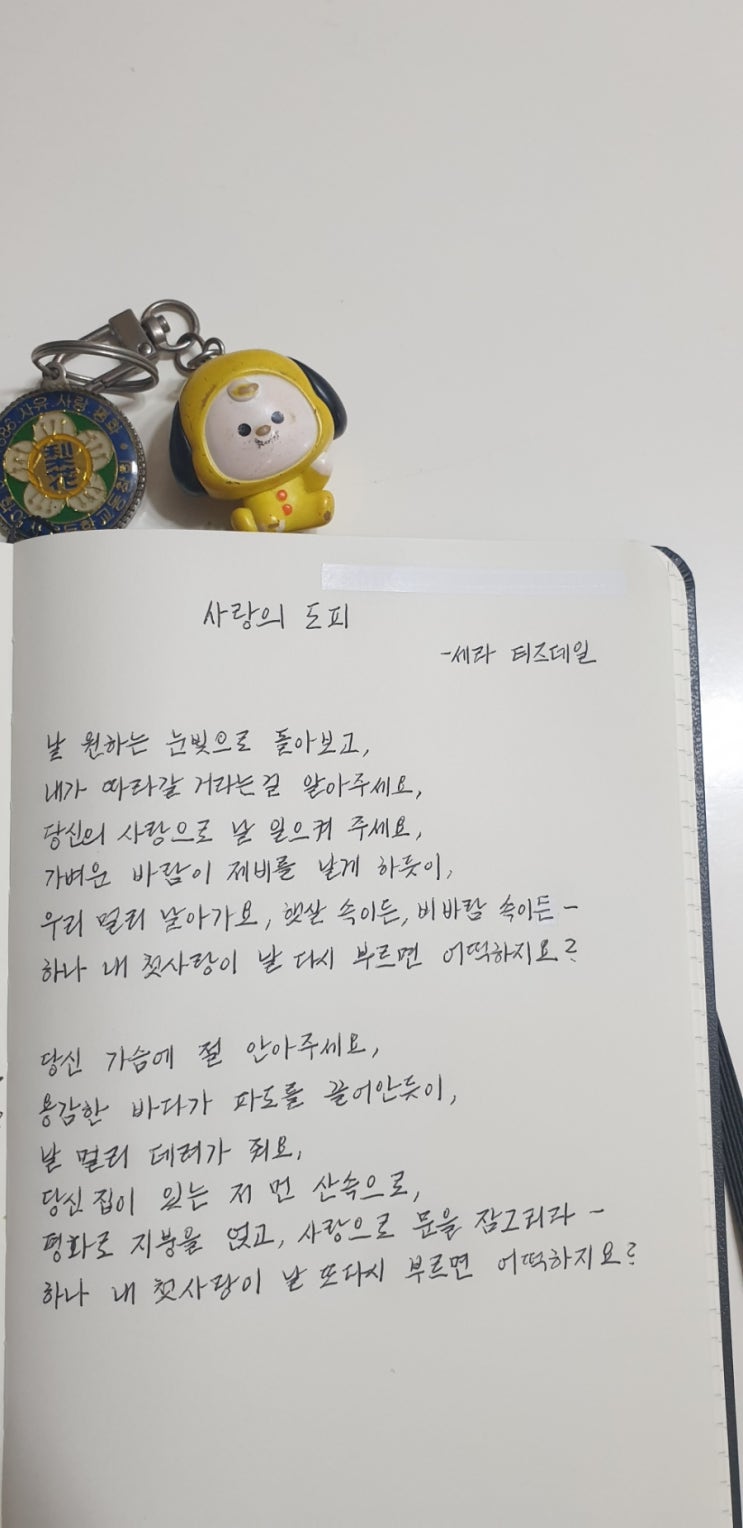 사유 사랑 평화
梨花
사랑의 도피
-세라 티즈데일
날 원하는 눈빛으로 돌아보고,
내가 따라갈 거라는걸 알아주세요,
당신의 사랑으로 날 일으켜 주세요,
가벼운 바람이 제비를 날게 하듯이,
우리 멀리 날아가요, 햇살 속이든, 비바람 속이든 -
하나 내 첫사랑이 날 다시 부르면 어떡하지요?
당신 가슴에 절 안아주세요,
용감한 바다가 파도를 끌어안듯이,
날 멀리 데려가 줘요,
당신 집이 있는 저 먼 산속으로,
평화로 지붕을 얹고, 사랑으로 문을 잠그리라 -
하나 내 첫사랑이 날 또다시 부르면 어떡하지요?